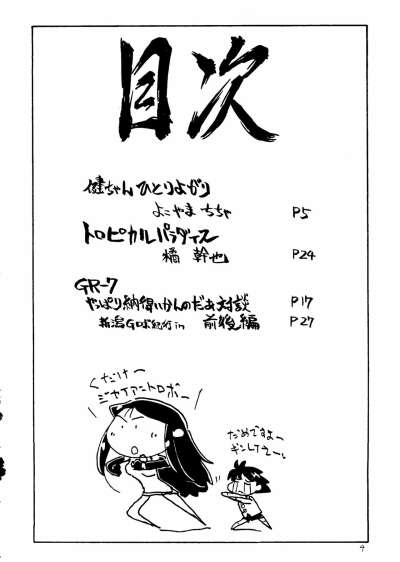 目次
健ちゃんひとりよがり
よこやま ちちゃ P5
トロピカルパラダイス
橘 幹也 P24
GR-7
やっぱり納得いかんのだぁ対談 P17
新潟GRお紀行in 前後編 P27
くだけー
ジャイアントロボー
だめですよー
ギンレイさーん
4